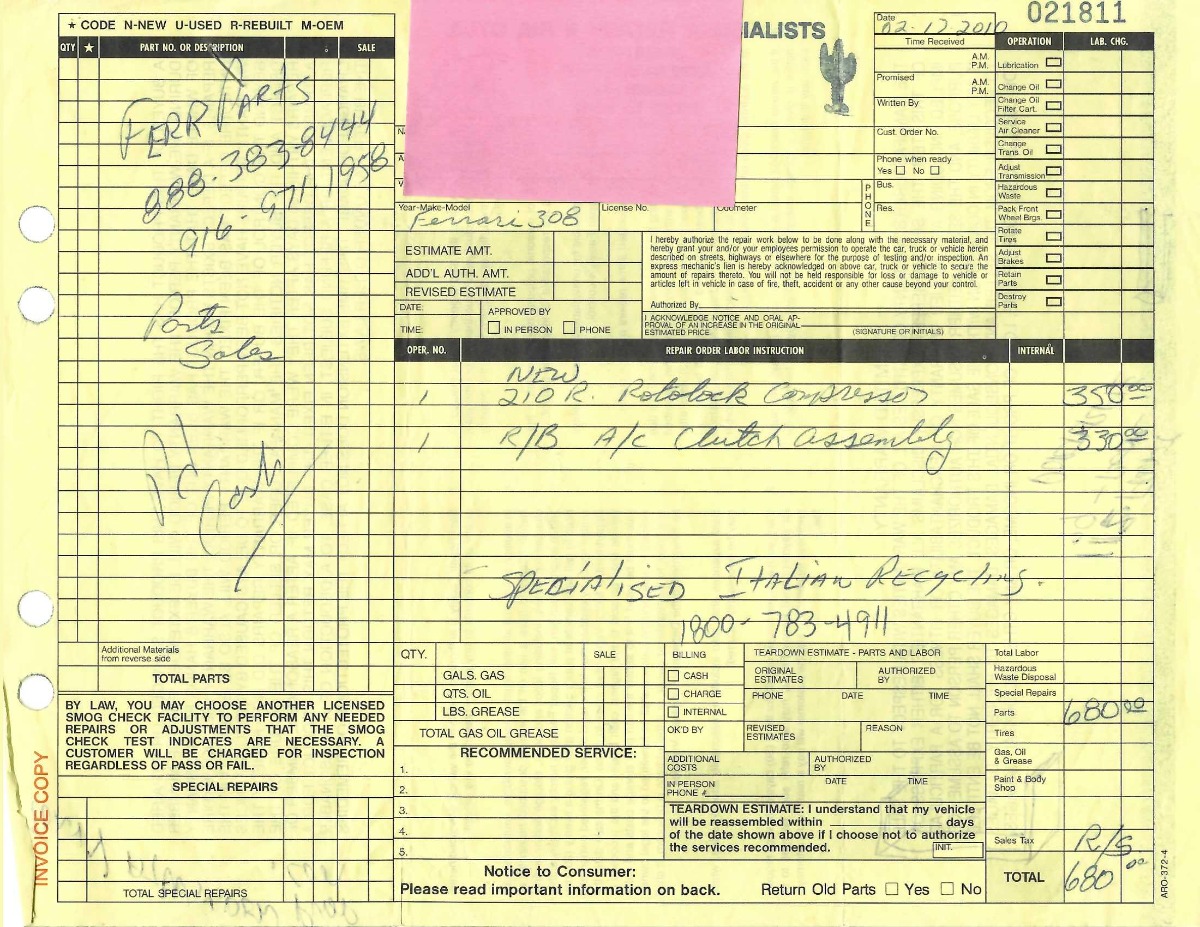 ★ CODE N-NEW U-USED R-REBUILT M-OEM
QTY ★ PART NO. OR DESCRIPTION SALE
FERR PARTS
888-383-8444
916-971-1958
Parts
Sales
Pd
Cash
Additional Materials
from reverse side
TOTAL PARTS
BY LAW, YOU MAY CHOOSE ANOTHER LICENSED
SMOG CHECK FACILITY TO PERFORM ANY NEEDED
REPAIRS OR ADJUSTMENTS THAT THE SMOG
CHECK TEST INDICATES ARE NECESSARY. A
CUSTOMER WILL BE CHARGED FOR INSPECTION
REGARDLESS OF PASS OR FAIL.
SPECIAL REPAIRS
TOTAL SPECIAL REPAIRS
INVOICE COPY
IALISTS
021811
Date
02-17-2010
Time Received
A.M.
P.M.
Promised
A.M.
P.M.
Written By
Cust. Order No.
Phone when ready
Yes No
PHONE
Bus.
Res.
OPERATION LAB. CHG.
Lubrication
Change Oil
Change Oil
Filter Cart.
Service
Air Cleaner
Change
Trans. Oil
Adjust
Transmission
Hazardous
Waste
Pack Front
Wheel Brgs.
Rotate
Tires
Adjust
Brakes
Retain
Parts
Destroy
Parts
Year-Make-Model License No. Odometer
Ferrari 308
ESTIMATE AMT.
ADD'L AUTH. AMT.
REVISED ESTIMATE
DATE: APPROVED BY
TIME: IN PERSON PHONE
I hereby authorize the repair work below to be done along with the necessary material, and
hereby grant your and/or your employees permission to operate the car, truck or vehicle herein
described on streets, highways or elsewhere for the purpose of testing and/or inspection. An
express mechanic's lien is hereby acknowledged on above car, truck or vehicle to secure the
amount of repairs thereto. You will not be held responsible for loss or damage to vehicle or
articles left in vehicle in case of fire, theft, accident or any other cause beyond your control.
Authorized By
I ACKNOWLEDGE NOTICE AND ORAL AP-
PROVAL OF AN INCREASE IN THE ORIGINAL
ESTIMATED PRICE. (SIGNATURE OR INITIALS)
OPER. NO. REPAIR ORDER LABOR INSTRUCTION INTERNAL
NEW
1 210 R. Rotolock Compressor 350.00
1 R/B A/C Clutch assembly 330.00
SPECIALISED ITALIAN RECYCLING.
1800-783-4911
QTY. SALE
GALS. GAS
QTS. OIL
LBS. GREASE
TOTAL GAS OIL GREASE
RECOMMENDED SERVICE:
1.
2.
3.
4.
5.
BILLING
CASH
CHARGE
INTERNAL
OK'D BY
TEARDOWN ESTIMATE - PARTS AND LABOR
ORIGINAL
ESTIMATES
AUTHORIZED
BY
PHONE DATE TIME
REVISED
ESTIMATES
REASON
ADDITIONAL
COSTS
AUTHORIZED
BY
IN PERSON
PHONE #
DATE TIME
TEARDOWN ESTIMATE: I understand that my vehicle
will be reassembled within days
of the date shown above if I choose not to authorize
the services recommended. INIT.
Notice to Consumer:
Please read important information on back.
Return Old Parts Yes No
Total Labor
Hazardous
Waste Disposal
Special Repairs
Parts 680.00
Tires
Gas, Oil
& Grease
Paint & Body
Shop
Sales Tax R/S
TOTAL 680.00
ARO-372-4